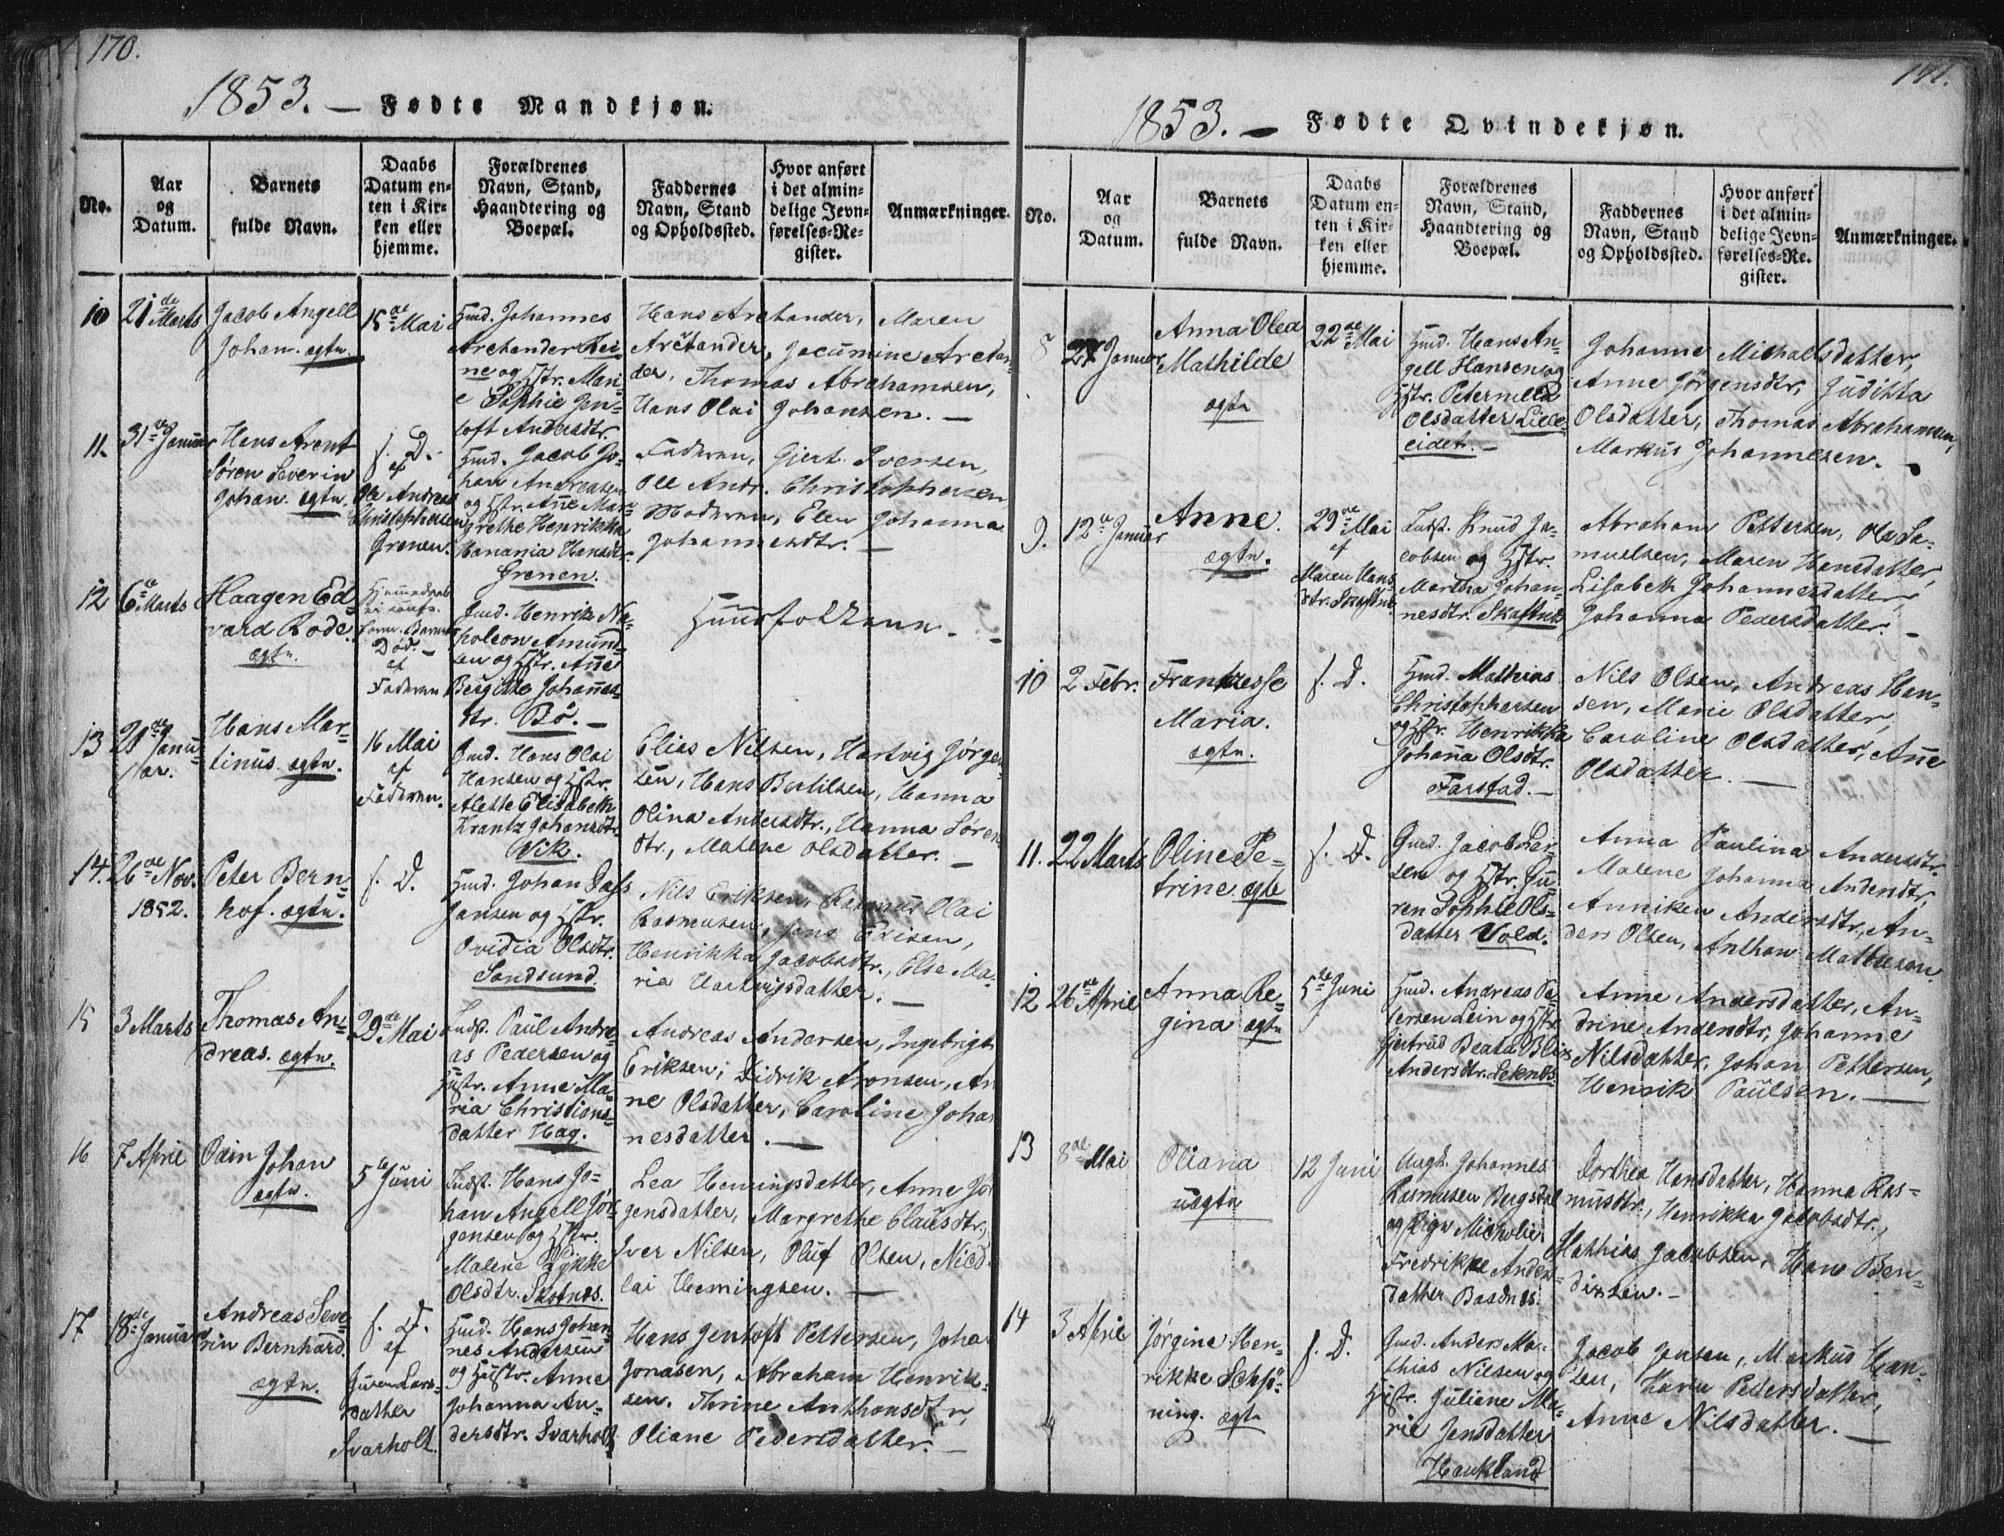 170.
1853. — Fødte Mandkjøn.
No.
Aar
og
Datum.
Barnets
fulde Navn.
Daabs
Datum en-
ten i Kir-
ken eller
hjemme.
Forældrenes
Navn, Stand,
Haandtering og
Boepæl.
Faddernes
Navn, Stand
og Opholdssted.
Hvor anført
i det almin-
delige Jevn-
førelses-Re-
gister.
Anmærkninger.
10
21de
Marts
Jacob Angell
Johan. ægte.
15de Mai
Gmd. Johannes
Arctander Lei-
ne og Hstr. Mari-
e Sophie Jen-
toft Andersdtr.
Hans Arctander, Maren
Arctander, Jacumine Arctan-
der, Thomas Abrahamsen,
Hans Olai Johansen. —
11.
31te Januar
Hans Arent
Søren Severin
Johan. ægte.
f. D.
af
Ole Andreas
Christophersen
Grenen.
Gmd. Jacob Jo-
han Andreasen
og Hstr. Anne Mar-
grethe Henrikka
Hanania Hansdtr.
Grenen.
Faderen, Gjert Iversen,
Ole Andr. Christophersen
Moderen, Elen Johanna
Johannesdtr. —
12
6te Marts
Haagen Ed-
vard Rode.
ægte.
Død.
af
Faderen
Gmd. Henrik Na-
poleon Amund-
sen og Hstr. Anne
Bergitte Johannes-
dtr. Bø. —
Huusfolkene. —
13
21de Janu-
ar.
Hans Mar-
tinus ægte.
16 Mai
af
Faderen.
Gmd. Hans Olai
Hansen og Hstr.
Alette Elisabeth
Krantz Johansdtr.
Vik.
Elias Nilsen, Hartvig Jørgen-
sen, Hans Bertilsen, Hanna
Olina Andersdtr., Hanna Søren-
dtr., Malene Olsdatter. —
14.
26de Nov.
1852.
Peter Bern-
hof. ægte.
f. D.
Gmd. Johan Dass
Jansen og Hstr.
Ovidia Olsdtr.
Sandsund.
Nils Eriksen, Rasmus Olai
Rasmusen, Jens Edisen,
Henrikka Jacobsdtr., Else Ma-
ria Hartvigsdatter. —
15
3 Marts
Thomas An-
dreas. ægte.
29de Mai
Indst. Paul Andre-
as Pedersen og
Hustr. Anne Ma-
ria Christians-
datter Hag.
Andreas Andersen, Ingebrigt
Eriksen, Didrik Aronsen, An
ne Olsdatter, Caroline Johan
nesdatter. —
16
7 April
Odin Johan
ægte.
5te Juni
Indst. Hans Jo-
han Angell Jør-
gensen og Hstr.
Malene Lykke
Olsdtr. Skotnes.
Lea Hemingsdatter, Anne Jør
gensdatter, Margrethe Clausdtr.,
Iver Nilsen, Oluf Olsen, Nico-
lai Hemingsen. —
17
18de Januar
Andreas Seve-
rin Bernhard.
ægte.
f. D.
af
Guren Lars-
datter
Svarholt.
Gmd. Hans Johan-
nes Andersen
og Hustr. Anne
Johanna An-
dersdtr. Svarholt
Hans Jentoft Pettersen, Johan
Jonasen, Abraham Henrik-
sen. Thrine Anthonsdtr,
Oliane Pedersdatter. —
171.
1853. — Fødte Qvindekjøn.
No.
Aar
og
Datum.
Barnets
fulde Navn.
Daabs
Datum en-
ten i Kir-
ken eller
hjemme.
Forældrenes
Navn, Stand,
Haandtering og
Boepæl.
Faddernes
Navn, Stand
og Opholdssted.
Hvor anført
i det almin-
delige Jevn-
førelses-Re-
gister.
Anmærkninger.
8
27 Januar
Anna Olea
Mathilde
ægte
22de Mai
Gmd. Hans An-
gell Hansen og
Hstr. Peternella
Olsdatter Lille-
eidet. —
Johanne Michaelsdatter,
Anne Jørgensdtr, Juditta
Olsdatter, Thomas Abrahamsen,
Markus Johannesen. —
9.
12te Januar
Anne.
ægte.
29de Mai
af
Maren Hans-
dtr. Skaftnes
Indst. Knud Ja-
cobsen og Hstr.
Martha Johan-
nesdtr. Skaftnes
Abraham Pettersen, Ole Sa-
muelsen, Maren Hansdatter,
Lisabeth Johannesdatter,
Johanna Pedersdatter. —
10
2 Febr.
Frantzesse
Maria.
ægte.
f. D.
Gmd. Mathias
Christophersen
og Hstr. Henrikka
Johanna Olsdtr.
Farstad. —
Nils Olsen, Andreas Han-
sen, Marie Olsdatter,
Caroline Olsdatter, Anne
Olsdatter. —
11.
22 Marts
Oline Pe-
trine ægte
f. D.
Gmd. Jacob Lar-
sen og Hstr. Gu-
ren Sophie Ols-
datter Vold.
Anna Paulina Andersdtr.
Malene Johanna Andersdtr,
Anniken Andersdtr., An-
ders Olsen, Anthon Mathesen.
12
26de April
Anna Re-
gina ægte
5te Juni
Gmd. Andreas Pe-
tersen Lein og Hstr.
Gjertrud Beata Blix
Andersdtr. Leknes.
Anne Andersdatter, An-
drine Andersdtr, Johanne
Nilsdatter, Johan Pettersen,
Henrik Paulsen. —
13
8de Mai
Oliana
uægte
12 Juni
Ungk. Johannes
Rasmusen Bergsdal
og Pige Micholie
Fredrikke Anders-
datter Bosdnes.
Dorthea Hansdatter, Hanna Ras-
musdtr., Henrikka Jacobsdtr.,
Mathias Jacobsen, Hans Ben-
dixsen. —
14
3 April
Jørgine Hen-
rikke Schjø-
ning. ægte
f. D.
Gmd. Anders Ma-
thias Nilsen og
Hustr. Juliane Ma-
rie Jensdatter
Haukland
Jacob Jensen, Markus Han-
sen, Karen Pedersdatter,
Anne Nilsdatter. —